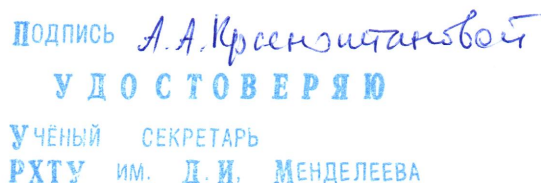 Подпись А.А.Красноштановой
УДОСТОВЕРЯЮ
Учёный секретарь
РХТУ им. Д.И. Менделеева